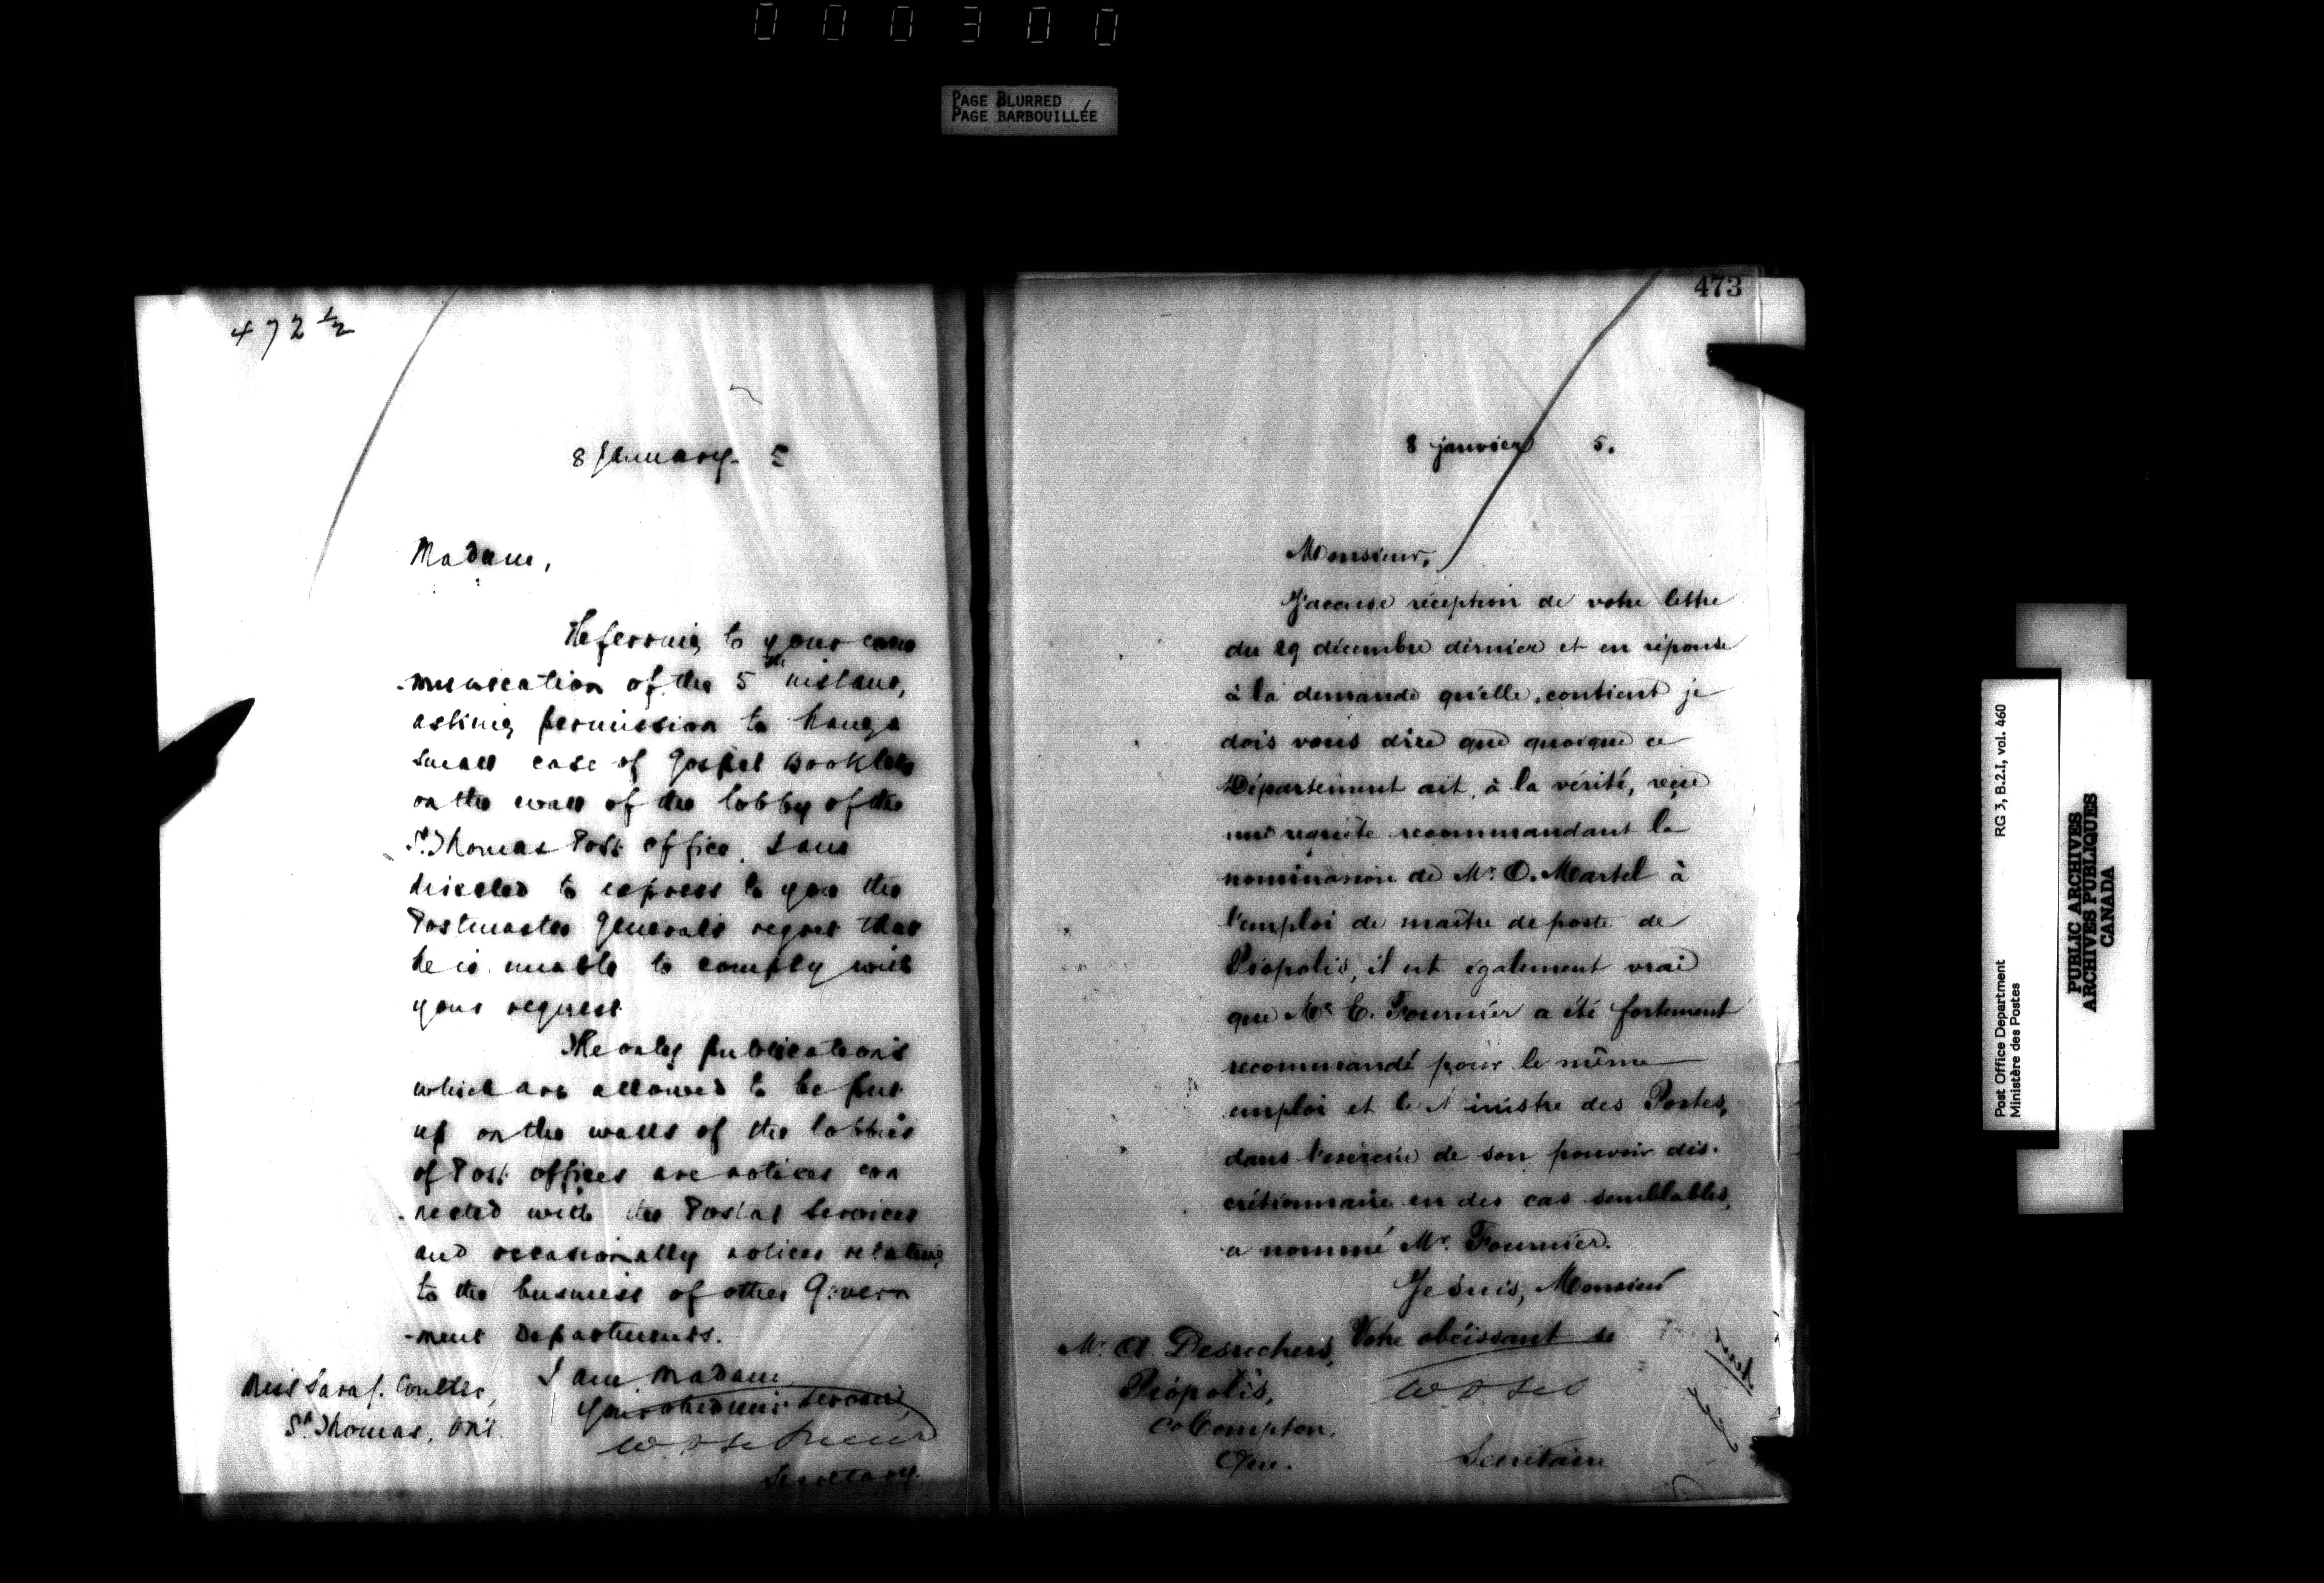 000300
PAGE BLURRED
PAGE BARBOUILLÉE
472 1/2
8 January 5
Madam,
Referring to your com
-munication of the 5th instant,
asking permission to hang a
small case of Gospel Booklets
on the wall of the lobby of the
St. Thomas Post office, I am
directed to express to you the
Postmaster Generals regret that
he is unable to comply with
your request.
The only publications
which are allowed to be put
up on the walls of the lobbies
of Post offices are notices con
-nected with the Postal Services
and occasionally notices relating
to the business of other Govern
-ment Departments.
I am, Madam,
Your obedient servant,
Secretary.
Miss Sara J. Coulter,
St. Thomas, Ont.
473
8 janvier 5.
Monsieur,
J'accuse réception de votre lettre
du 29 décembre dernier et en réponse
à la demande qu'elle contient je
dois vous dire que quoique ce
Département ait, à la vérité, reçu
une requête recommandant la
nomination de Mr. O. Martel à
l'emploi de maître de poste de
Piopolis, il est également vrai
que Mr. E. Fournier a été fortement
recommandé pour le même
emploi et le Ministre des Postes,
dans l'exercice de son pouvoir dis-
crétionnaire en des cas semblables,
a nommé Mr. Fournier.
Je suis, Monsieur
Votre obéissant se
Secrétaire
Mr. A. Desruchers,
Piopolis,
Co Compton,
Que.
Post Office Department
Ministère des Postes
RG 3, B.2.I, vol. 460
PUBLIC ARCHIVES
ARCHIVES PUBLIQUES
CANADA